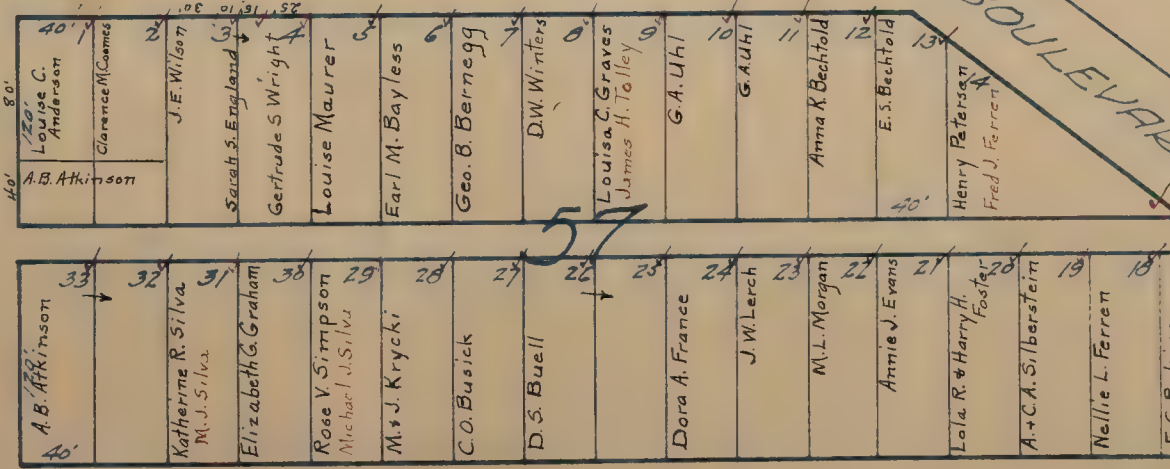 25' 15' 10' 30'
BOULEVAR
40' 1 2 3 4 5 6 7 8 9 10 11 12 13 14
80'
40'
120'
Louise C.
Anderson
Clarence M Coomes
A.B. Atkinson
J.E. Wilson
Sarah S. England
Gertrude S Wright
Louise Maurer
Earl M. Bayless
Geo. B. Bernegg
D.W. Winters
Louisa C. Graves
James H. Tolley
G.A. Uhl
G.A. Uhl
Anna K. Bechtold
E.S. Bechtold
40'
Henry Peterson
Fred J. Ferren
57
33 32 31 30 29 28 27 26 25 24 23 22 21 20 19 18
A.B. Atkinson
120'
40'
Katherine R. Silva
M.J. Silva
Elizabeth G. Graham
Rose V. Simpson
Michael J. Silva
M. & J. Krycki
C.O. Busick
D.S. Buell
Dora A. France
J.W. Lerch
M.L. Morgan
Annie J. Evans
Lola R. & Harry H.
Foster
A. + C.A. Silberstein
Nellie L. Ferren